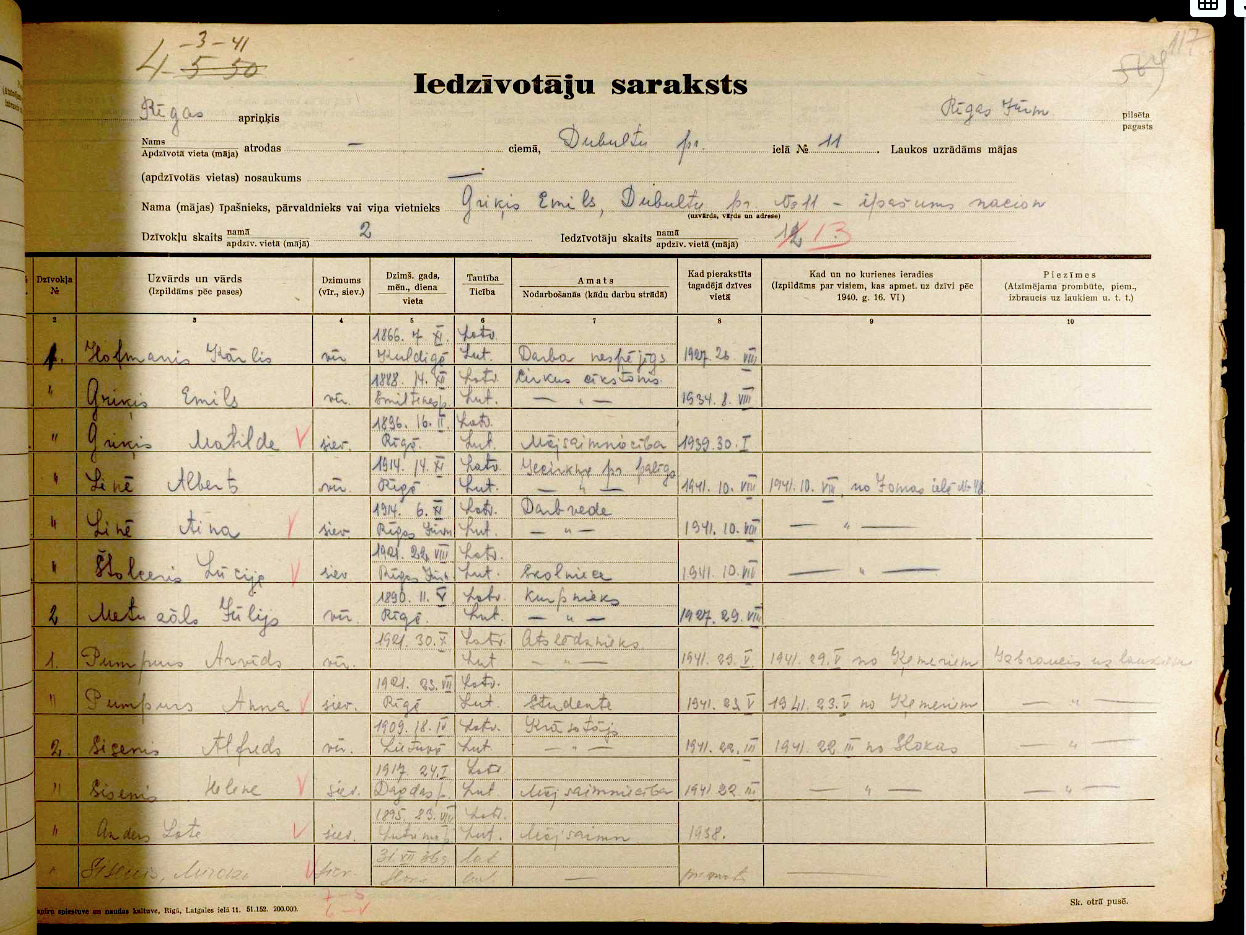 -3-41
4-5-50
117
Iedzīvotāju saraksts
Rīgas apriņķis Rīgas Jūrm pilsēta
pagasts
Nams
Apdzīvotā vieta (māja) atrodas — ciemā, Dubultu pr. ielā № 11 . Laukos uzrādāms mājas
(apdzīvotās vietas) nosaukums —
Nama (mājas) īpašnieks, pārvaldnieks vai viņa vietnieks Griķis Emils, Dubultu pr. №11 – īpašums nacion
(uzvārds, vārds un adrese)
Dzīvokļu skaits namā
apdzīv. vietā (mājā) 2 Iedzīvotāju skaits namā
apdzīv. vietā (mājā) 12 13
Dzīvokļa № Uzvārds un vārds (Izpildāms pēc pases) Dzimums (vīr., siev.) Dzimš. gads, mēn., diena vieta Tautība Ticība Amats Nodarbošanās (kādu darbu strādā) Kad pierakstīts tagadējā dzīves vietā Kad un no kurienes ieradies (Izpildāms par visiem, kas apmet. uz dzīvi pēc 1940. g. 16. VI) Piezīmes (Atzīmējama prombūte, piem., izbraucis uz laukiem u. t. t.)
2 3 4 5 6 7 8 9 10
1866. 7 XI Latv.
1. Hofmanis Kārlis vīr. Kuldīgā Lut. Darba nespējīgs 1927 26 VIII
1888. 14. XI Latv. Cirkus cīkstonis
" Griķis Emils vīr. Lut. — " — 1934. 8. VIII
1896. 16. II Latv.
" Griķis Matilde V siev. Rīgā. Lut. Mājsaimniecība 1939. 30. I
1914. 14. XI Latv. Iecirkņa pr. palīgs
" Linē Alberts vīr. Rīgā Lut. — " — 1941. 10. VIII 1941. 10. VIII no Jomas ielā № 48
1914. 6. XI Latv. Darbvede
" Linē Aina V siev. Rīgas Jūrm Lut. — " — 1941. 10. VIII — " —
1921. 22. VIII Latv.
" Štolceris Lūcija V siev Rīgas Jūrm Lut. Skolniece 1941. 10. VIII — " —
1890. 11. V Latv. Kurpnieks
2 Metuzāls Jūlijs vīr. Rīgā Lut. — " — 1927. 29. VIII
1921. 30. X Latv. Atslēdznieks
1. Pumpurs Arvīds vīr. Lut — " — 1941. 29. V 1941. 29. V no Ķemeriem Izbraucis uz laukiem
1921. 23. VII Latv.
" Pumpurs Anna V siev. Rīgā Lut. Studente 1941. 23 V 1941. 23. V no Ķemeriem — " —
1909. 18. IV Latv. Krāsotājs
2. Sicenis Alfreds vīr. Lietuvā Lut. — " — 1941. 22. III 1941 22 III no Slokas — " —
1917 24. I Latv
" Sisenis Helene V siev. Dagdas p. Lut Mājsaimniecība 1941 22 III — " — — " —
1895. 23. VIII Latv.
" Anders Late V siev. Lut. Mājsaimn 1938.
31 VII Lat
" V siev. Lut. —
Latgales ielā 11. 51.152. 200.000.
Sk. otrā pusē.